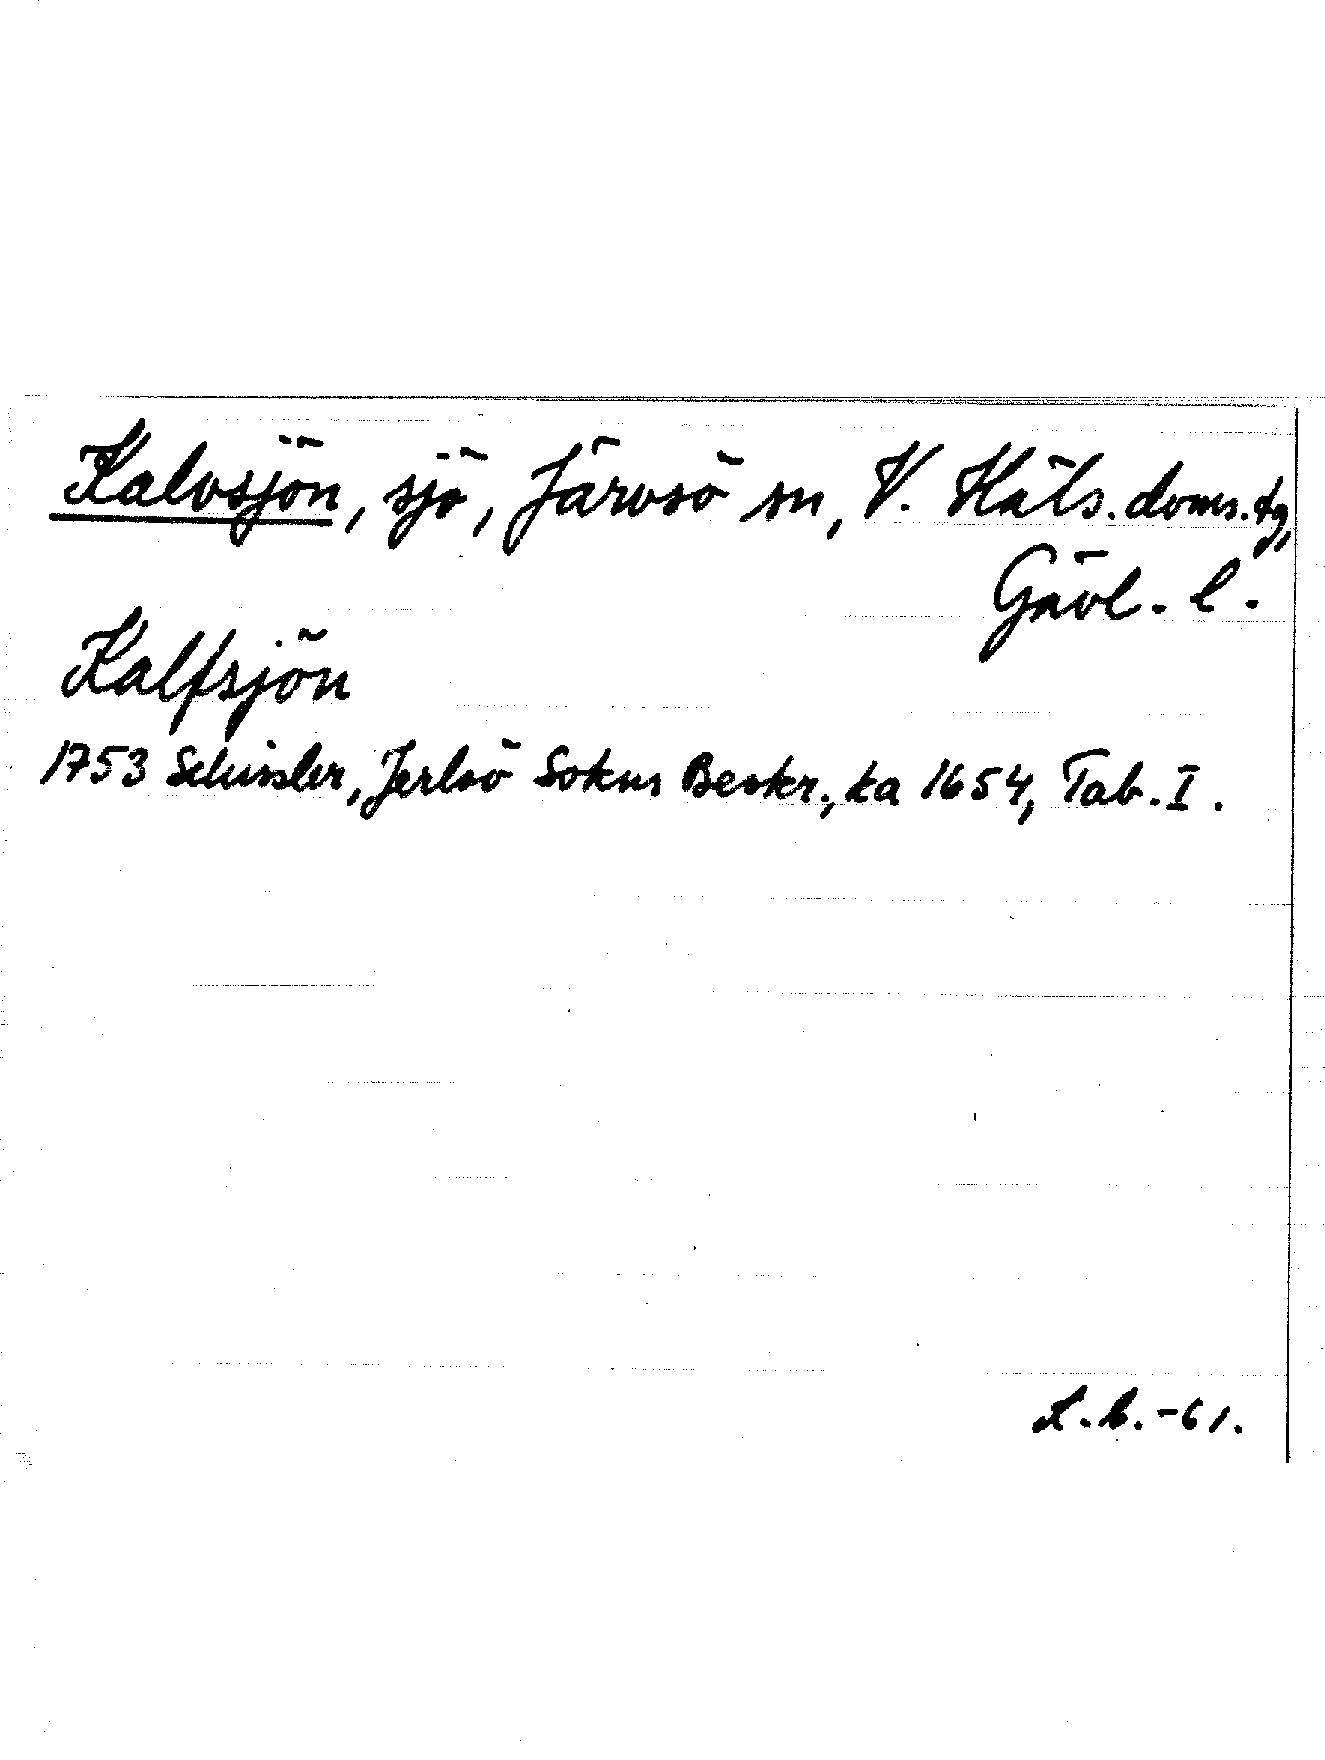 Kalvsjön, sjö, Järvsö sn, V. Häls. doms.tg,
Gävl. l.
Kalfsjön
1753 Schissler, Jerlsö Sokns Beskr., ka 1654, Tab. I.
L.b.-61.